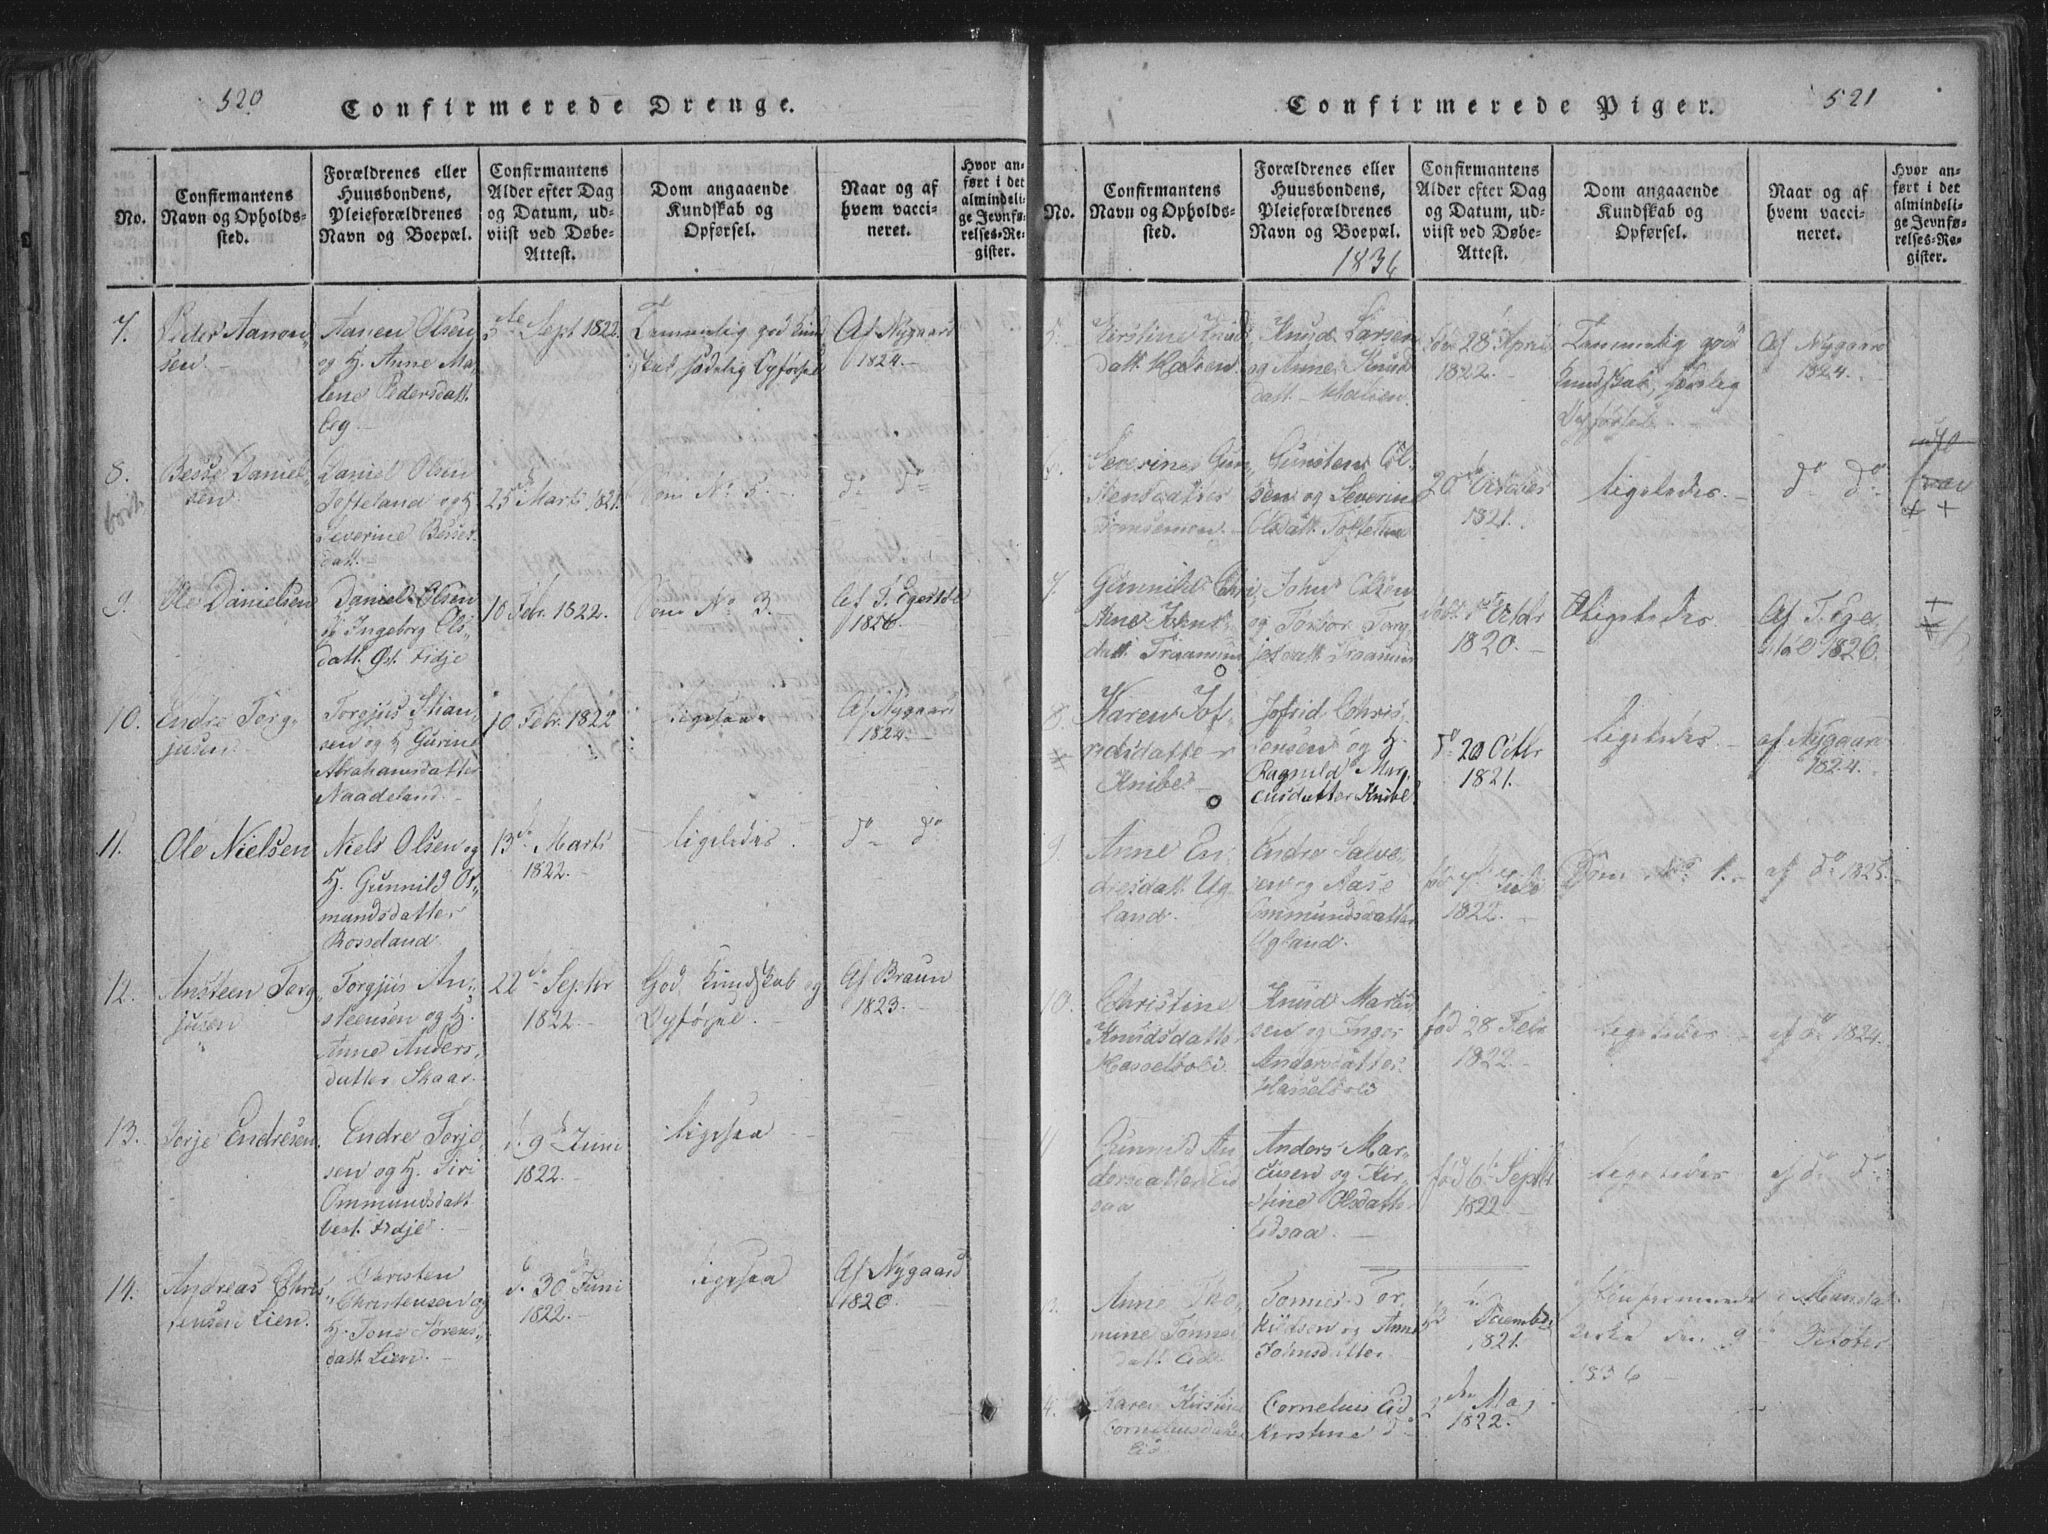 520
Confirmerede Drenge.
No.
Confirmantens
Navn og Opholds-
sted.
Forældrenes eller
Huusbondens,
Pleieforældrenes
Navn og Boepæl.
Confirmantens
Alder efter Dag
og Datum, ud-
viist ved Døbe-
Attest.
Dom angaaende
Kundskab og
Opførsel.
Naar og af
hvem vacci-
neret.
Hvor an-
ført i det
almindeli-
ge Jevnfø-
relses-Re-
gister.
7.
Peder Aanon
sen.
Aanen Olsen
og H. Anne Ma,
lene Pedersdatt.
Eeg.
5te Sept 1822.
Temmelig god Kund
skab, sædelig Opførsel
Af Nygaard
1824.
8.
Besse Daniel,
sen.
Daniel Olsen
Tofteland og H.
Severine Besses
datt.
25de Marts 1821.
Som No 5.
do do
9.
Ole Danielsen
Daniel Olsen
og Ingeborg Ols,
datt. Øst. Fidje
10 Febr. 1822.
Som No 3.
Af T. Egeste
1826.
10.
Endre Torg,
jusen
Torgjus Stian,
sen og H. Gurine
Abrahamsdatter
Naadeland.
10 Febr. 1822
ligesaa.
Af Nygaard
1824.
11.
Ole Nielsen
Niels Olsen og
H. Gunnild Os,
mundsdatter
Rosseland.
13de Marts
1822.
ligeledes.
do do
12.
Ansteen Torg,
jusen
Torgjus An,
steensen og H.
Anne Anders,
datter Skaar.
22de Septbr
1822.
God Kundskab og
Opførsel.
Af Braun
1823.
13.
Torje Endresen.
Endre Torje,
sen og H. Siri
Ommundsdatt.
vest. Fidje.
d. 9de Juni
1822.
ligesaa
14.
Andreas Chris
tensen Lien.
Christen
Christensen og
H. Tone Sørens,
datt. Lien.
d. 30de Juni
1822.
ligesaa
Af Nygaard
1820.
Confirmerede Piger.
521
No.
Confirmantens
Navn og Opholds-
sted.
Forældrenes eller
Huusbondens,
Pleieforældrenes
Navn og Boepæl.
1836
Confirmantens
Alder efter Dag
og Datum, ud-
viist ved Døbe-
Attest.
Dom angaaende
Kundskab og
Opførsel.
Naar og af
hvem vacci-
neret.
Hvor an-
ført i det
almindeli-
ge Jevnfø-
relses-Re-
gister.
5.
Kirstine Knud
datt.
Knud Larsen
og Anne Knuds
datt.
fød 28 April
1822.
Temmelig god
Kundskab, sædelig
Opførsel.
Af Nygaard
1824.
6.
Severine Gun,
stensdatter
Gunsten Ol,
sen og Severine
Olsdatt. Tofteland
20de October
1821.
ligeledes.
do do
7.
Gunnild Chri,
datt. Traanum
John Olsen
og Torbor Torg,
jusdatt. Traanum
1ste Octbr
1820.
ligeledes.
Af T. Ege,
1826.
8.
Karen Jof,
ridsdatter
Knibe
Jofrid Chris,
tensen og H.
Ragnild Mar,
cusdatter Knibe
do 20 Octbr
1821.
ligeledes.
af Nygaard
1824.
9.
Anne En,
dresdatt. Ug,
land.
Endre Salve,
sen og Aase
Ommundsdatter
Ugland.
1822.
Dom No 1.
af do 1825.
10.
Christine
Knudsdatter
Hasselbold
Knud Martin
sen og Inger
Andersdatter
Hasselbold
fød 28 Feb
1822.
ligeledes
af do 1824.
11
Gunnild An
dersdatter Eid
saa
Anders Mar,
cusen og Kir,
stine Olsdatter
Eidsaa.
fød 6te Septbr
1822.
ligeledes
af do do
Anne Tho,
mine Tønnes
datt. Eid.
Tønnes Tor,
kildsen og Anne
Johnsdatter
December
1821.
Confirmerede i Mandal
Kirke den 9de October
1836
4.
Karen Kirstine
Corneliusdatter
Eid
Cornelius Eid
Kirstine do
den Maj
1822.